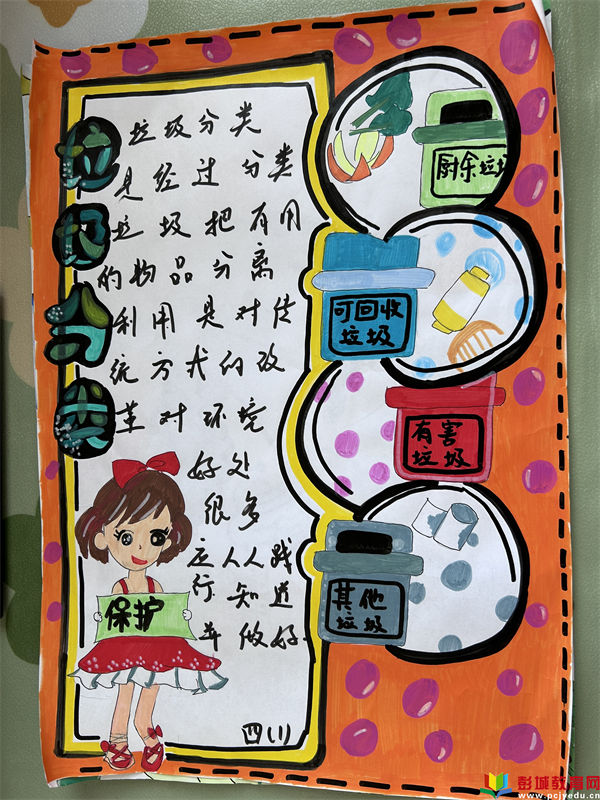 垃圾分类
垃圾分类
是经过分类
垃圾把有用
的物品分离
利用是对传
统方式的改
革对环境
好处
很多
应人人践
行知道
并做好
四(1)
保护
厨余垃圾
可回收
垃圾
有害
垃圾
其他
垃圾
彭城教育网
www.pcjyedu.cn